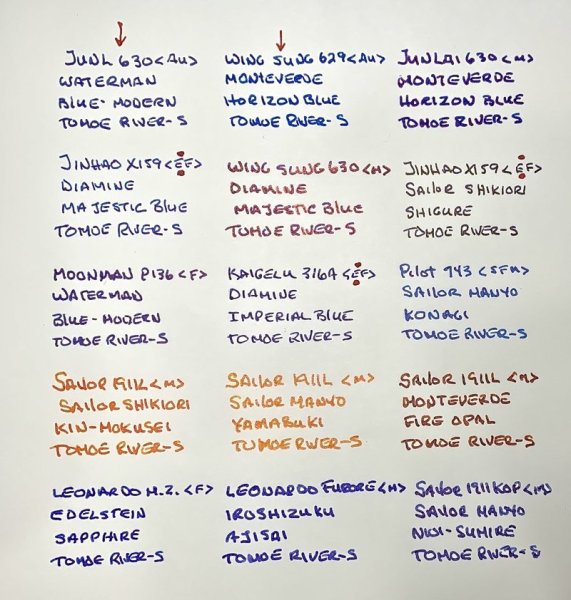 JUNL 630 <Au>
WATERMAN
BLUE-MODERN
TOMOE RIVER-S
WING SUNG 629 <Au>
MONTEVERDE
HORIZON BLUE
TOMOE RIVER-S
JUNLAI 630 <M>
MONTEVERDE
HORIZON BLUE
TOMOE RIVER-S
JINHAO X159 <EF>
DIAMINE
MAJESTIC BLUE
TOMOE RIVER-S
WING SUNG 630 <M>
DIAMINE
MAJESTIC BLUE
TOMOE RIVER-S
JINHAO X159 <EF>
SAILOR SHIKIORI
SHIGURE
TOMOE RIVER-S
MOONMAN P136 <F>
WATERMAN
BLUE-MODERN
TOMOE RIVER-S
KAIGELU 316A <EF>
DIAMINE
IMPERIAL BLUE
TOMOE RIVER-S
PILOT 743 <SFM>
SAILOR MANYO
KONAGI
TOMOE RIVER-S
SAILOR 1911L <M>
SAILOR SHIKIORI
KIN-MOKUSEI
TOMOE RIVER-S
SAILOR 1911L <M>
SAILOR MANYO
YAMABUKI
TOMOE RIVER-S
SAILOR 1911L <M>
MONTEVERDE
FIRE OPAL
TOMOE RIVER-S
LEONARDO M.Z. <F>
EDELSTEIN
SAPPHIRE
TOMOE RIVER-S
LEONARDO FURORE <M>
IROSHIZUKU
AJISAI
TOMOE RIVER-S
SAILOR 1911 KOP <M>
SAILOR MANYO
NIOI-SUMIRE
TOMOE RIVER-S